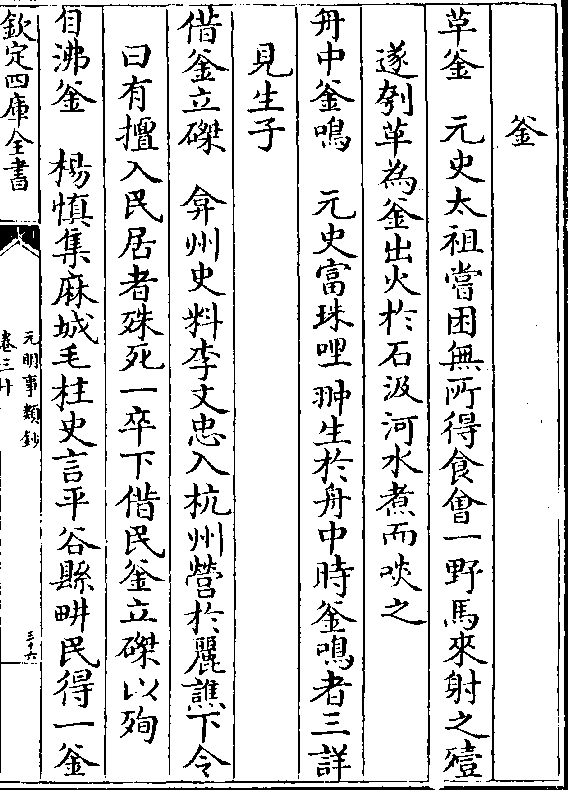 釜
草釜　元史太祖嘗困無所得食會一野馬來射之殪
遂刳革為釜出火於石汲河水煮而啖之
舟中釜鳴　元史富珠哩翀生於舟中時釜鳴者三詳
見生子
借釜立磔　弇州史料李文忠入杭州營於麗譙下令
曰有擅入民居者殊死一卒下借民釜立磔以殉
自沸釜　楊慎集麻城毛柱史言平谷縣畊民得一釜
欽定四庫全書
元明事類鈔
卷三十
三十六